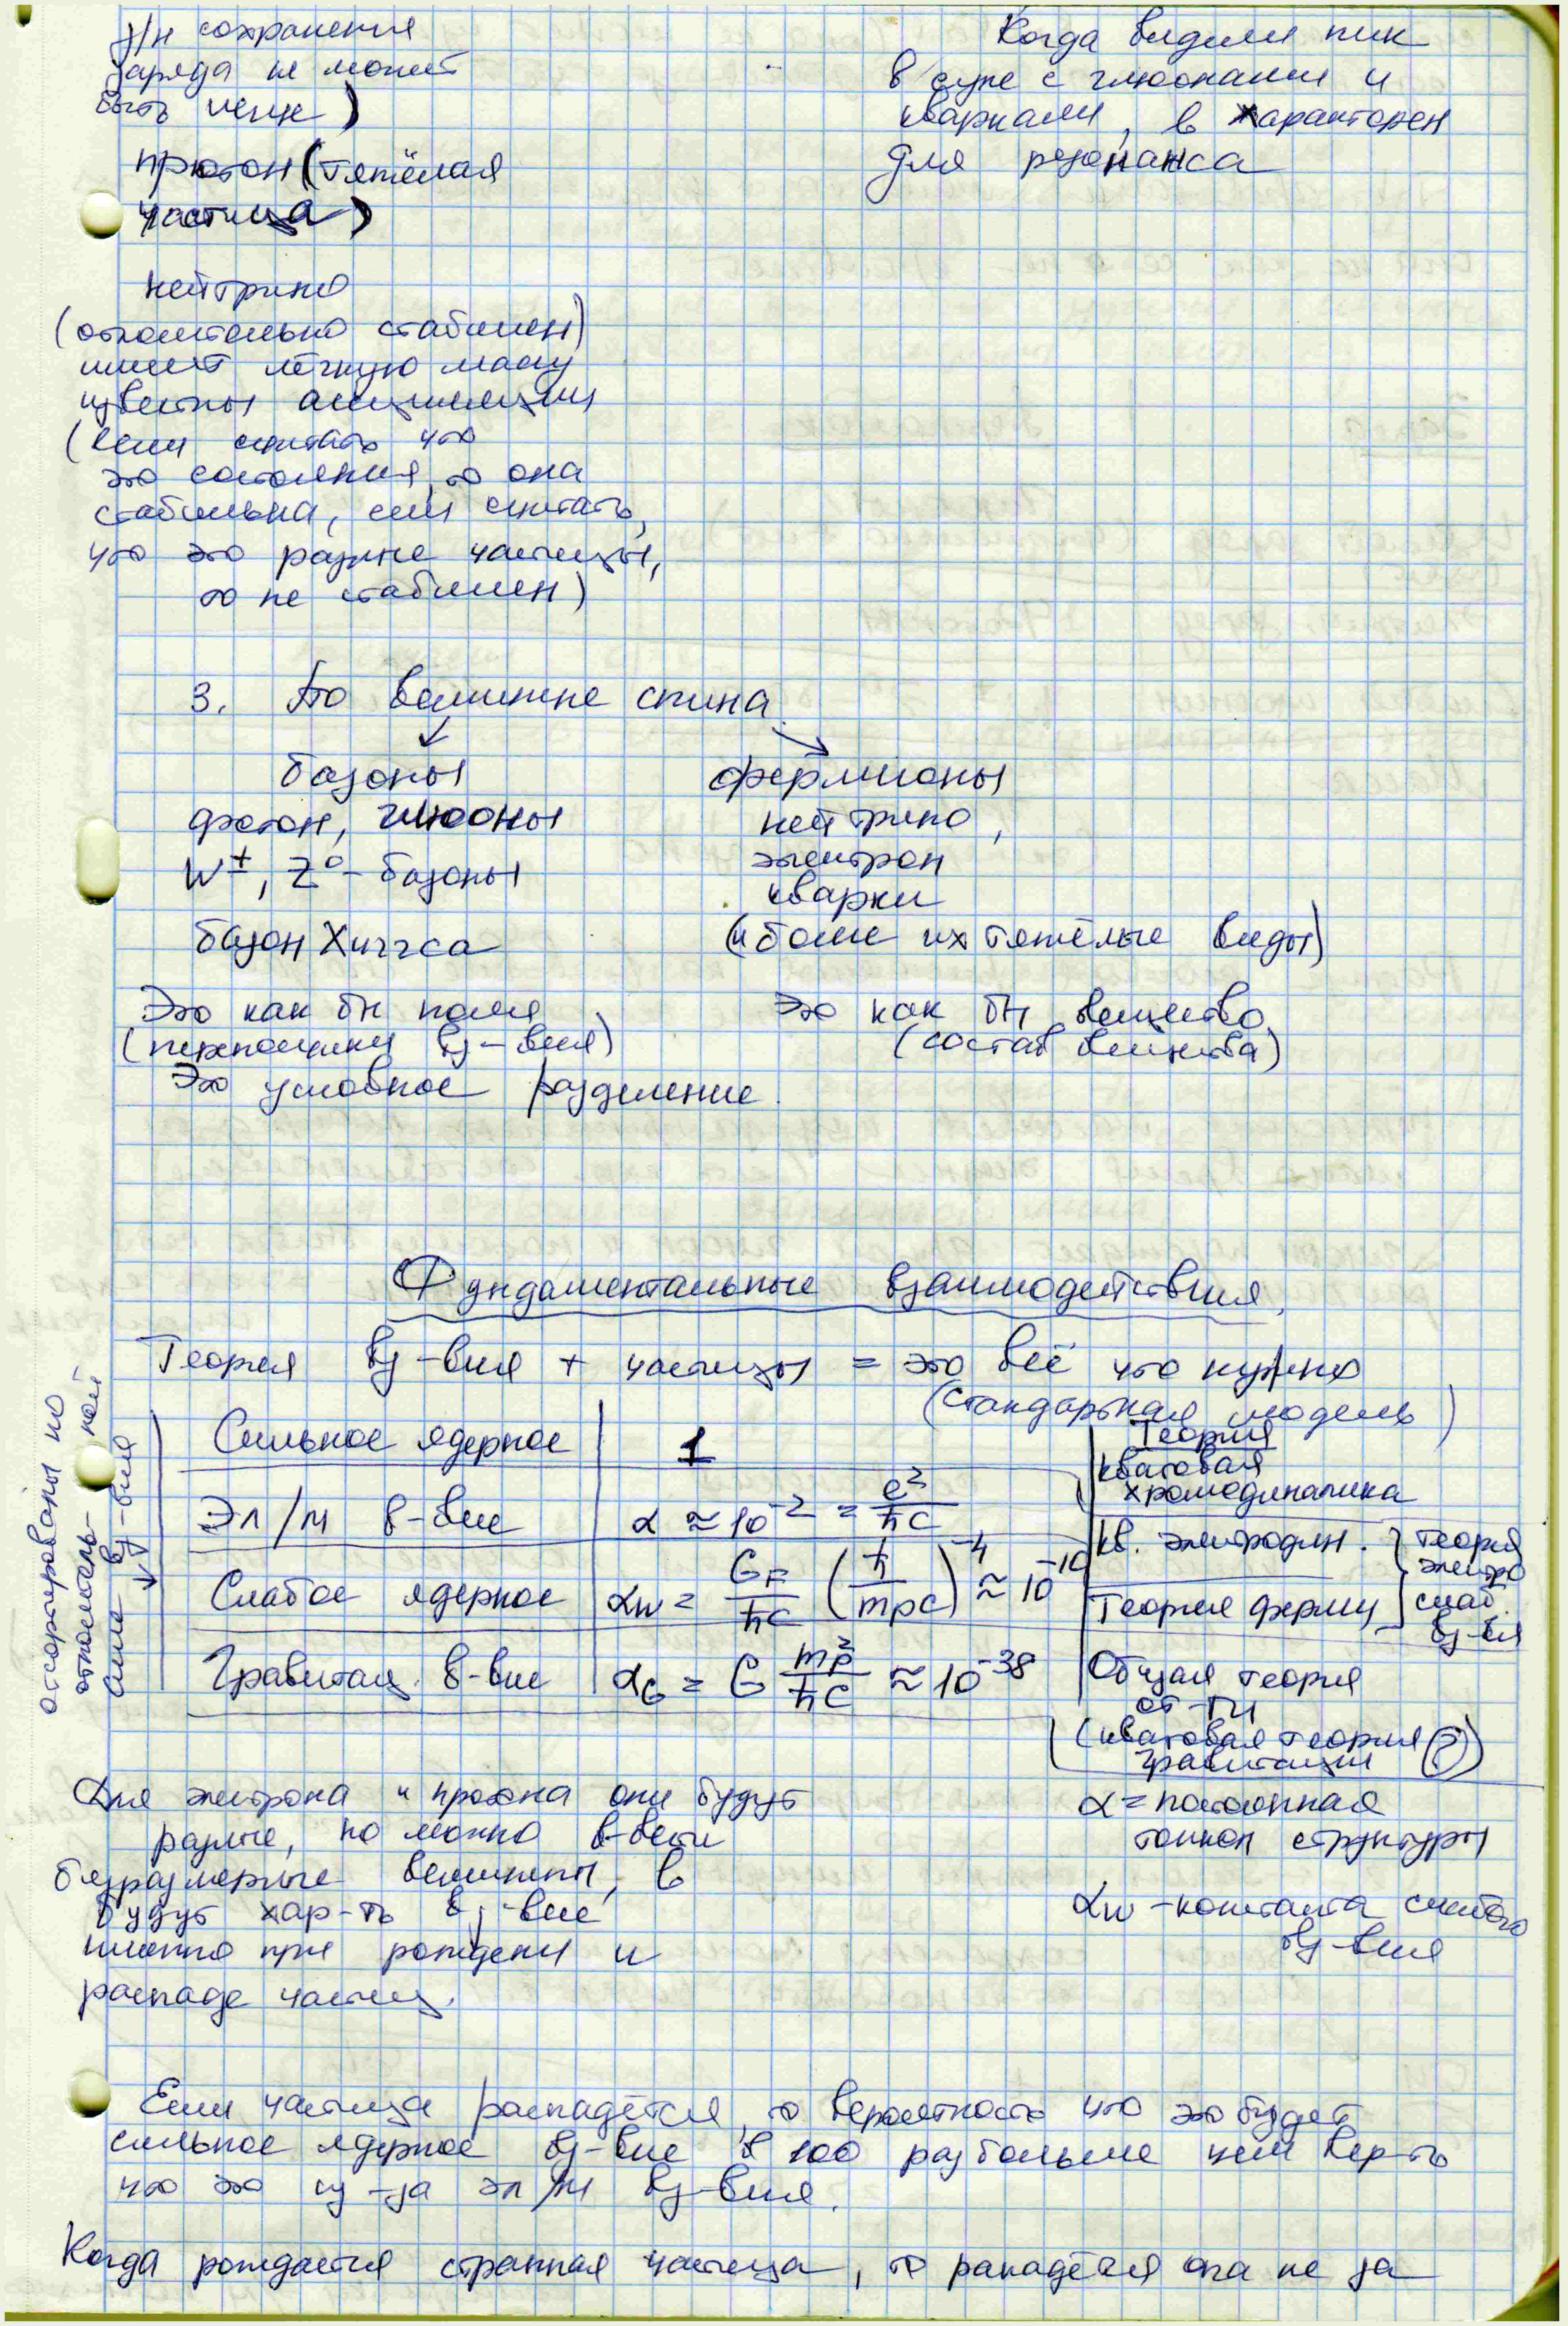 з/н сохранения
заряда не может
быть меньше)
протон (тяжёлая
частица)
нейтрино
(относительно стабилен)
имеет лёгкую массу
известны осцилляции
(если считать что
это состояния, то она
стабильна, если считать,
что это разные частицы,
то не стабилен)
Когда видим пик
в супе с глюонами и
кварками, в характерен
для резонанса
3. По величине спина
базоны
фотон, глюоны
W±, Z⁰ - базоны
базон Хиггса
Это как бы поля
(переносчики вз-вия)
фермионы
нейтрино,
электрон
кварки
(и более их тяжёлые виды)
Это как бы вещество
(состав вещества)
Это условное разделение.
Фундаментальные взаимодействия.
Теория вз-вия + частицы = это всё что нужно
(стандартная модель)
отсортированы по
относитель- ной
силе вз-вия
Сильное ядерное | 1 | Теория
квантовая
хромодинамика
Эл/м в-вие | α ≈ 10⁻² = e²/ħc | кв. электродин.
Слабое ядерное | αw = G_F/ħc (ħ/mpc)⁻⁴ ≈ 10⁻¹⁰ | Теория ферми
теория
электро
слаб.
вз-вия
Гравитац. в-вие | α_G = G mp²/ħc ≈ 10⁻³⁸ | Общая теория
от-ти
(квантовая теория (?))
гравитации
Для электрона и протона они будут
разные, но можно в-вести
безразмерные величины, в
будут хар-ть вз-вие
именно при рождении и
распаде частиц.
α = постоянная
тонкой структуры
αw - константа слабого
вз-вия
Если частица распадётся, то вероятность что это будет
сильное ядерное вз-вие в 100 раз больше чем вер-ть
что это из-за эл/м вз-вия.
Когда рождается странная частица, то распадётся она не за